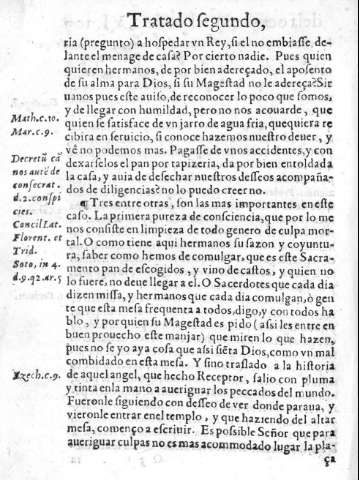 Tratado segundo,
ria (pregunto) a hospedar vn Rey, si el no embiasse de-
lante el menage de casa? Por cierto nadie. Pues quien
quieren hermanos, de por bien adereçado, el aposento
de su alma para Dios, si su Magestad no le adereça? Sir
uanos pues este auiso, de reconocer lo poco que somos,
y de llegar con humildad, pero no nos acouarde, que
quien se satisface de vn jarro de agua fria, quequiera re
cibira en seruicio, si conoce hazemos nuestro deuer, y
vè no podemos mas. Pagasse de vnos accidentes, y con
dexarselos el pan por tapizeria, da por bien entoldada
la casa, y auia de desechar nuestros desseos acompaña-
dos de diligencias? no lo puedo creer no.
¶ Tres entre otras, son las mas importantes en este
caso. La primera pureza de consciencia, que por lo me
nos consiste en limpieza de todo genero de culpa mor-
tal. O como tiene aqui hermanos su sazon y coyuntu-
ra, saber como hemos de comulgar, que es este Sacra-
mento pan de escogidos, y vino de castos, y quien no
lo fuere, no deue llegar a el. O Sacerdotes que cada dia
dizen missa, y hermanos que cada dia comulgan, ò gen
te que esta mesa frequenta a todos, digo, y con todos ha
blo, y por quien su Magestad es pido (assi les entre en
buen prouecho este manjar) que miren lo que hazen,
pues no se yo aya cosa que assi siẽta Dios, como vn mal
combidado en esta mesa. Y sino traslado a la historia
de aquel angel, que hecho Receptor, salio con pluma
y tinta en la mano a aueriguar los peccados del mundo.
Fueronle siguiendo con desseo de ver donde paraua, y
vieronle entrar en el templo, y que haziendo del altar
mesa, començo a escriuir. Es possible Señor que para
aueriguar culpas no es mas acommodado lugar la pla-
ça
Math. c. 10.
Mar. c. 9.
Decretũ cã
nos autẽ de
consecrat.
d. 2. conspi
cies.
Concil. Lat.
Florent. et
Trid.
Soto, in 4.
d. 9. q 2. ar. 5
Ezech. c. 9.